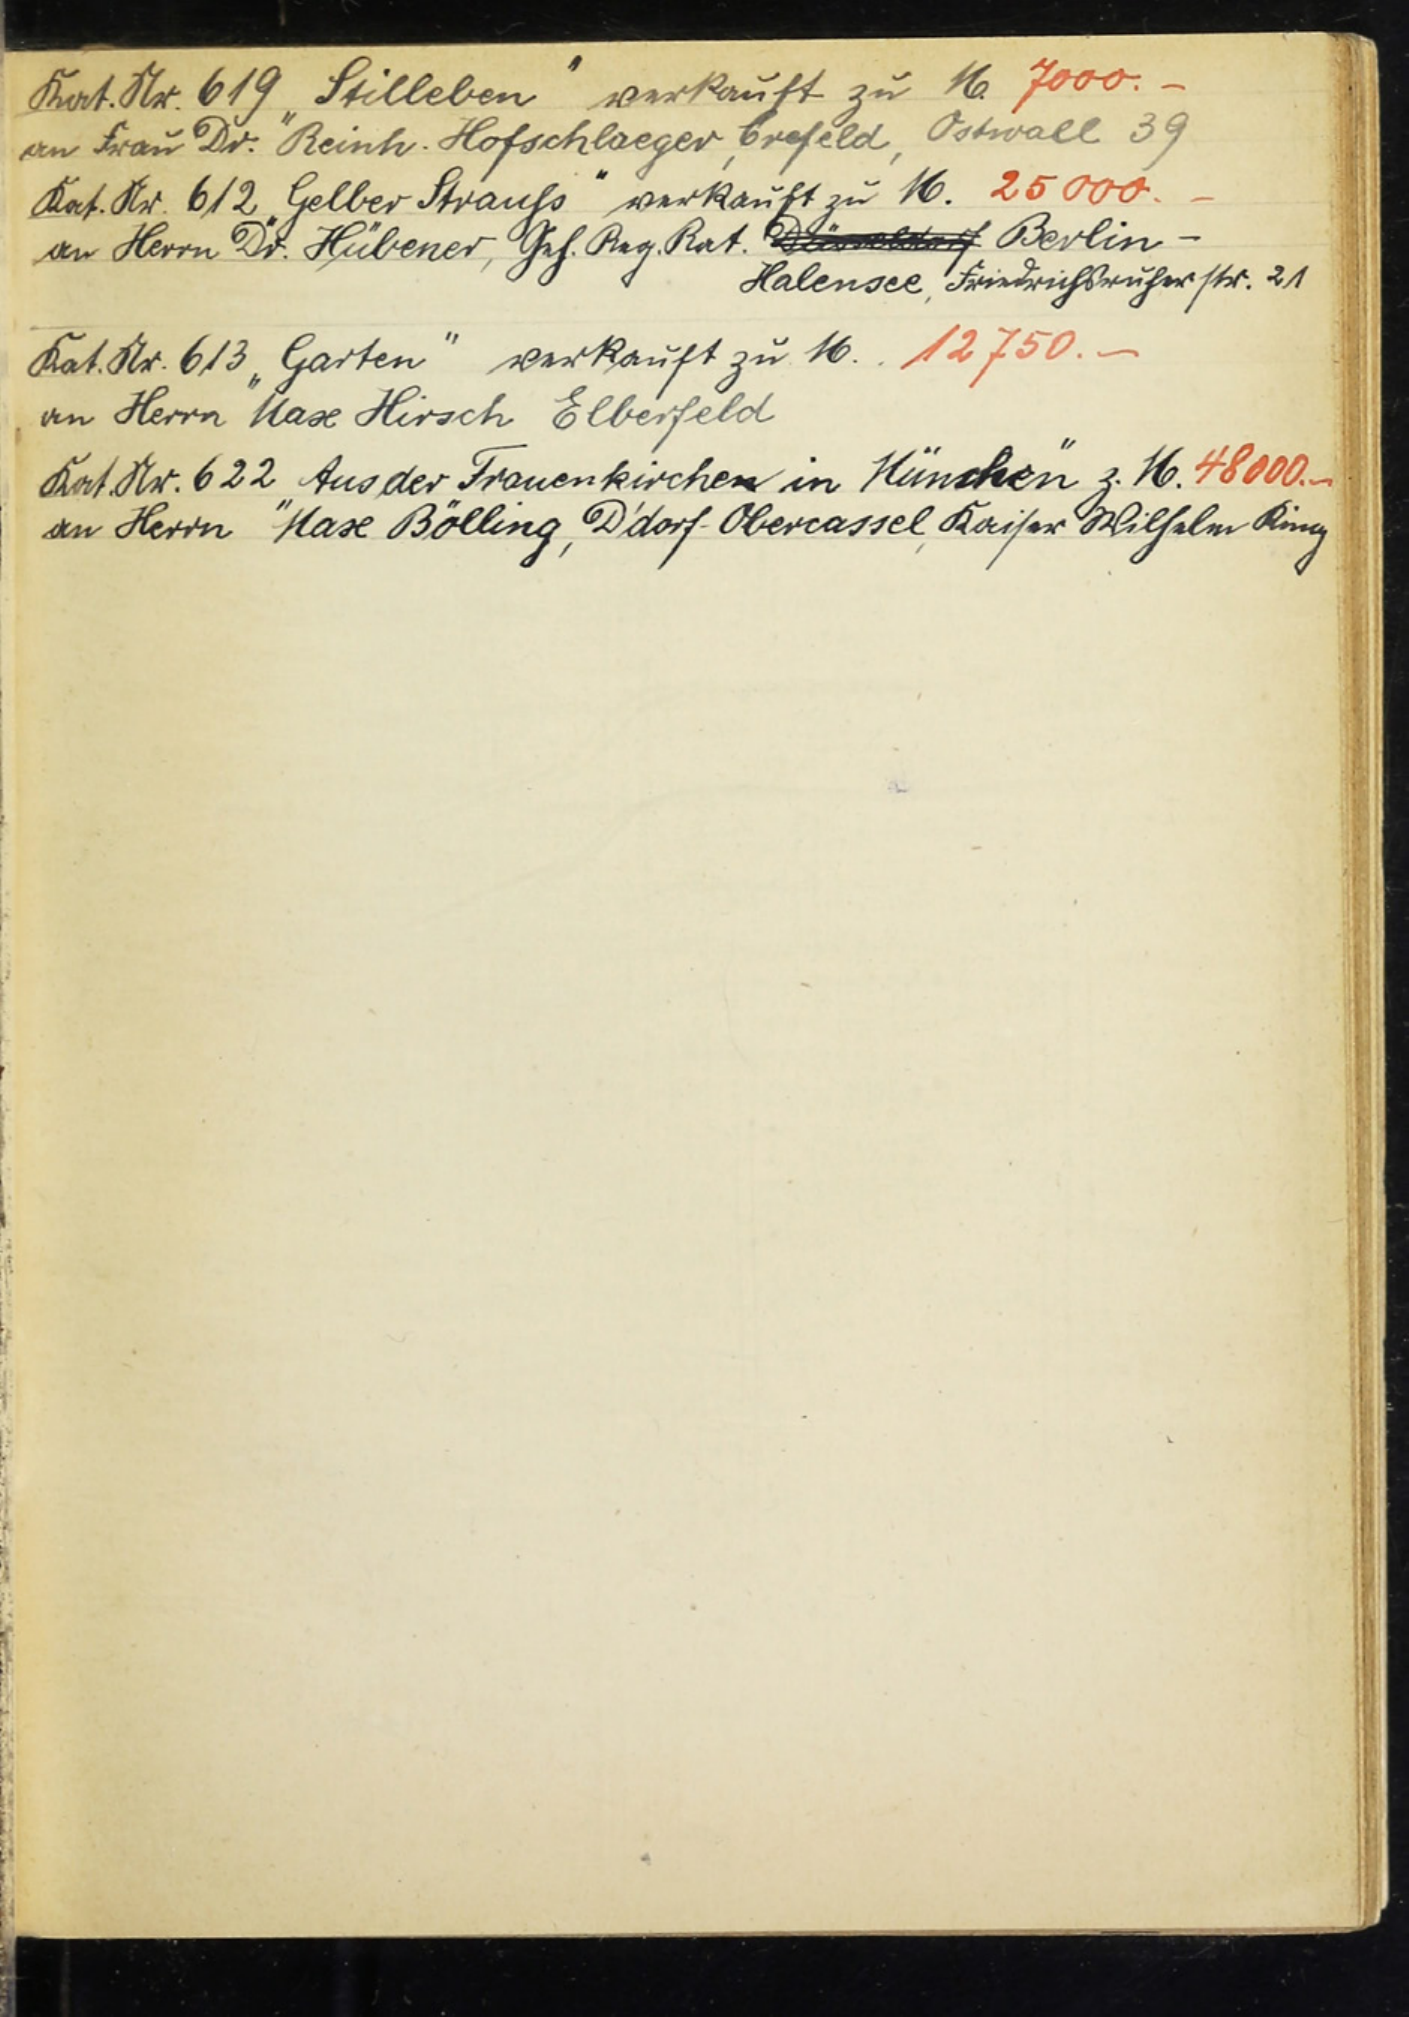 Kat. Nr. 619 „Stilleben" verkauft zu M. 7000.-
an Frau Dr. Reinh. Hofschlaeger, Crefeld, Ostwall 39
Kat. Nr. 612 „Gelber Strauss" verkauft zu M. 25000.-
an Herrn Dr. Hübener, Geh. Reg. Rat. Düsseldorf Berlin-
Halensee, Friedrichsruherstr. 21
Kat. Nr. 613 „Garten" verkauft zu M. 12750.-
an Herrn Max Hirsch Elberfeld
Kat. Nr. 622 „Aus der Frauenkirchen in München" z. M. 48000.-
an Herrn Max Bölling, D'dorf-Obercassel, Kaiser Wilhelm Ring